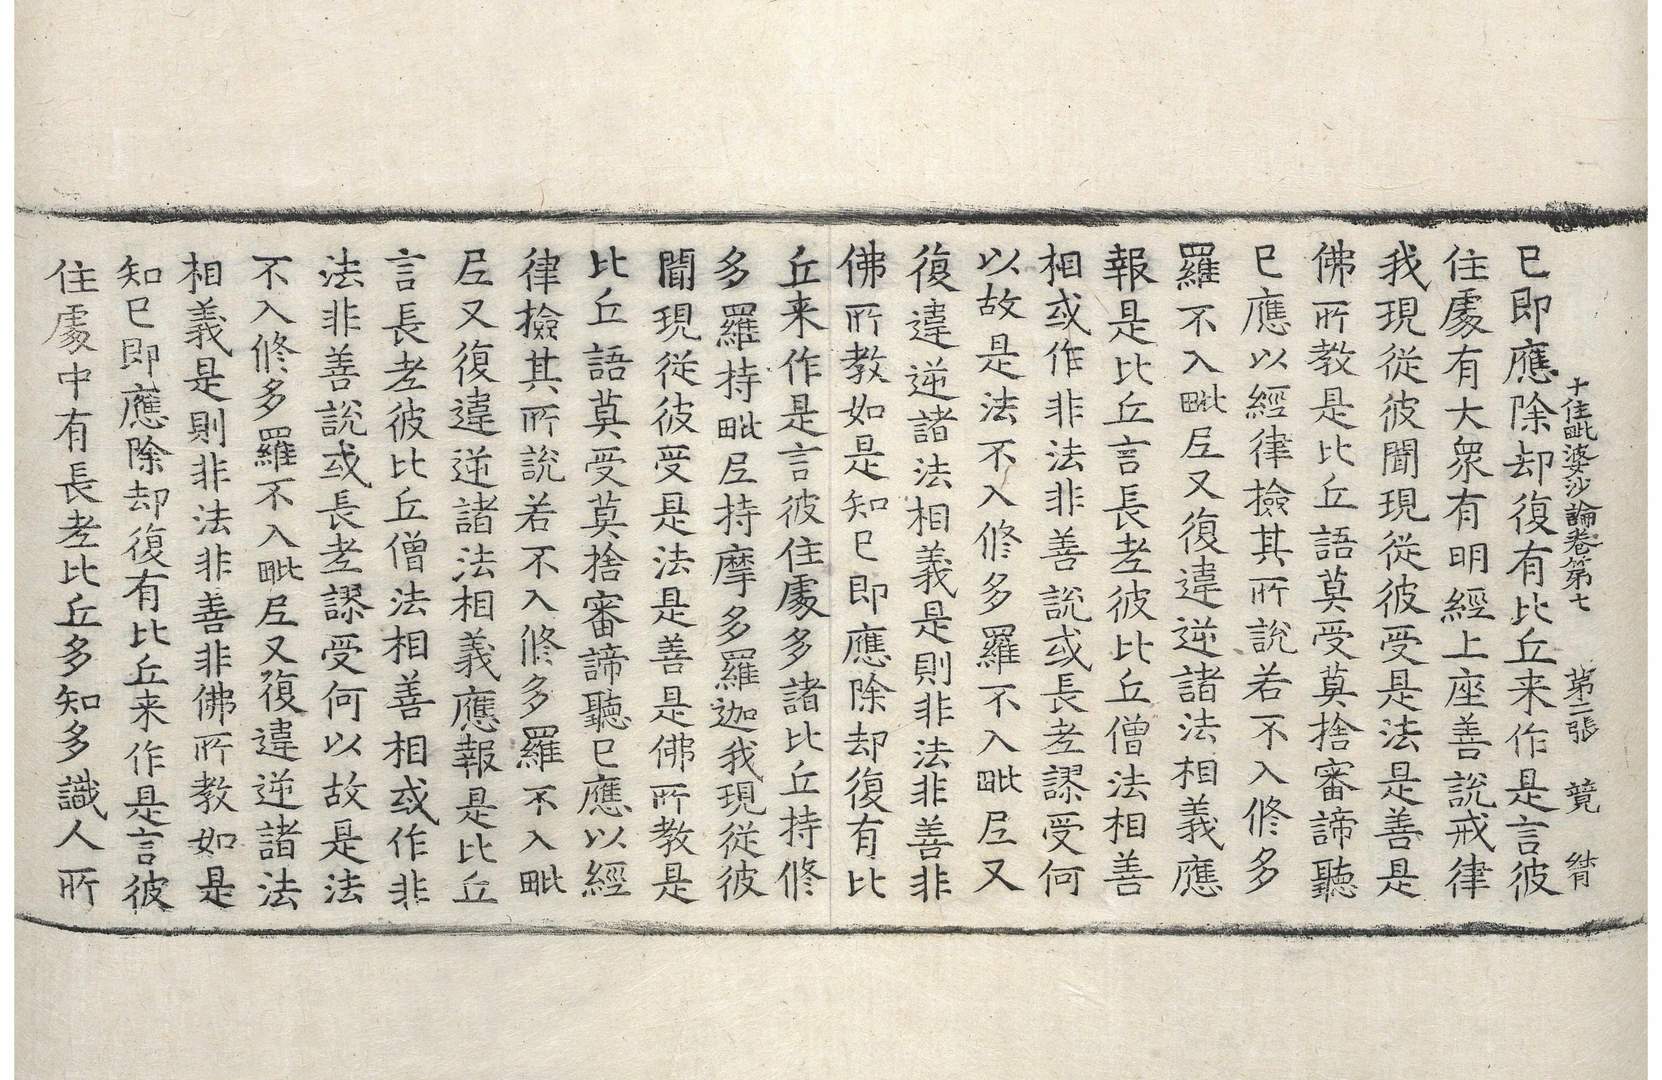 十住毗婆沙論卷第七 第二張 竟
已即應除却復有比丘来作是言彼
住處有大衆有明經上座善說戒律
我現從彼聞現從彼受是法是善是
佛所教是比丘語莫受莫捨審諦聽
已應以經律撿其所說若不入修多
羅不入毗尼又復違逆諸法相義應
報是比丘言長老彼比丘僧法相善
相或作非法非善說或長老謬受何
以故是法不入修多羅不入毗尼又
復違逆諸法相義是則非法非善非
佛所教如是知已即應除却復有比
丘来作是言彼住處多諸比丘持修
多羅持毗尼持摩多羅迦我現從彼
聞現從彼受是法是善是佛所教是
比丘語莫受莫捨審諦聽已應以經
律撿其所說若不入修多羅不入毗
尼又復違逆諸法相義應報是比丘
言長老彼比丘僧法相善相或作非
法非善說或長老謬受何以故是法
不入修多羅不入毗尼又復違逆諸法
相義是則非法非善非佛所教如是
知已即應除却復有比丘来作是言彼
住處中有長老比丘多知多識人所